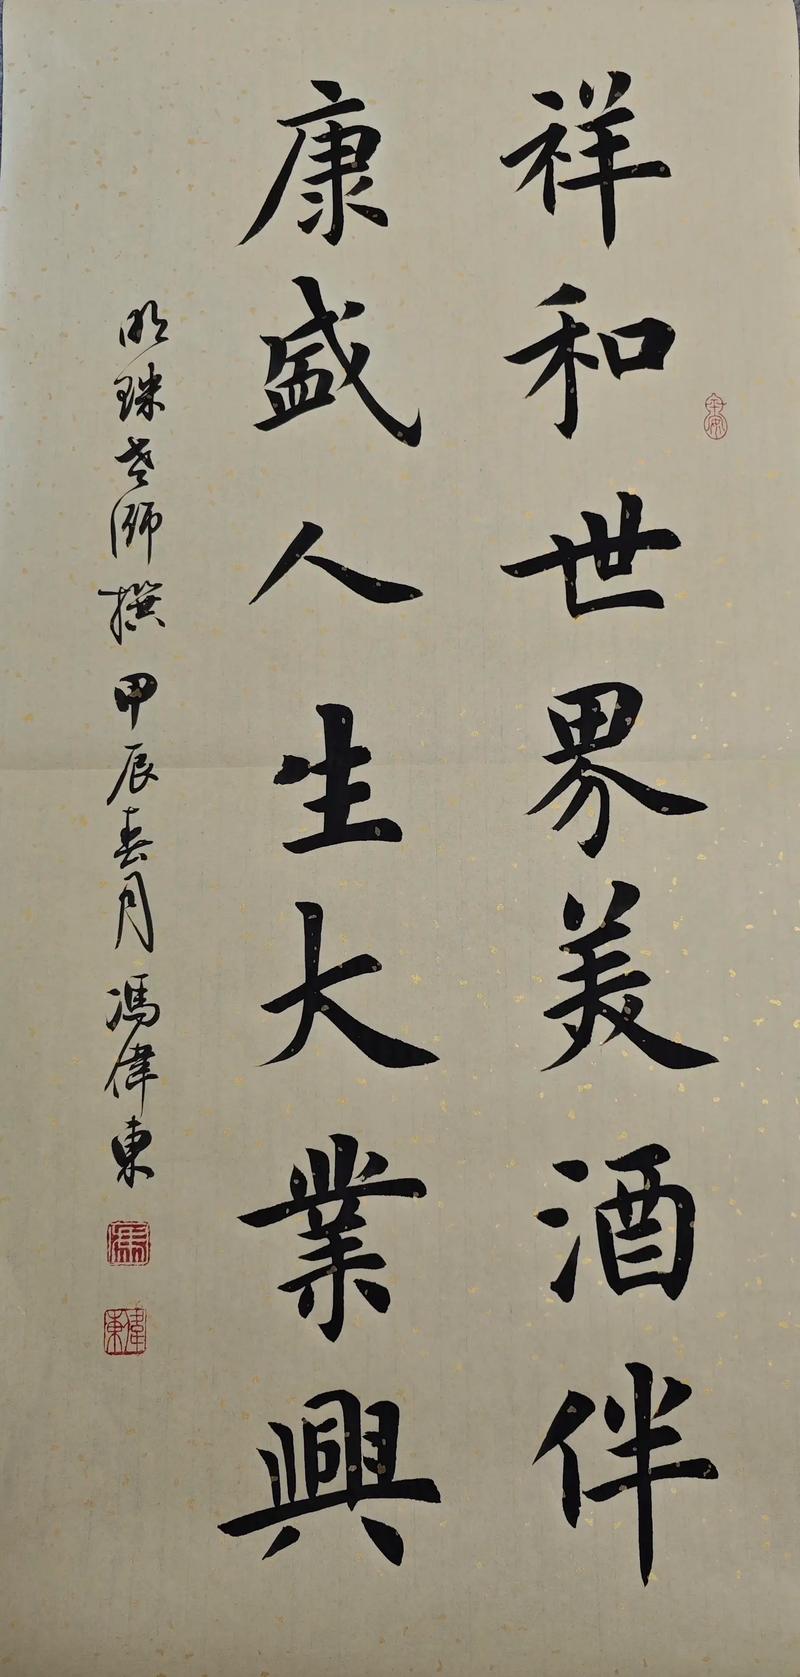 祥和世界美酒伴
康盛人生大業興
明珠老師撰甲辰春月馮偉東
馮
偉東